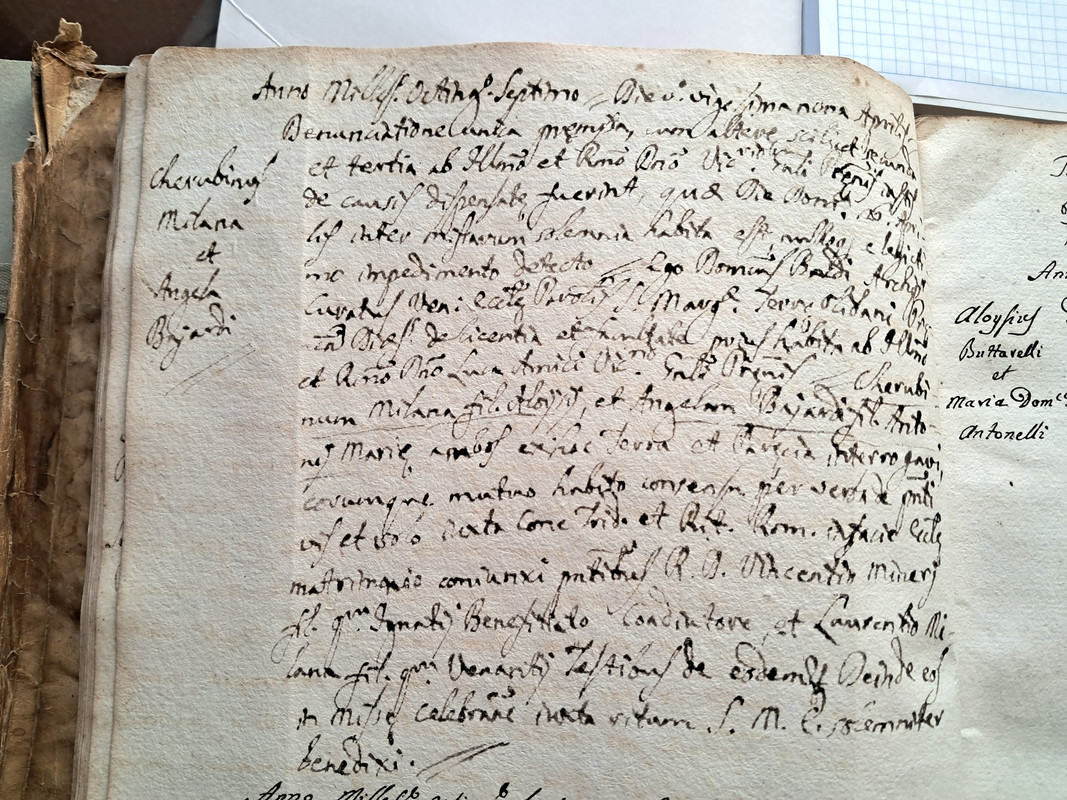 Anno Milles.º Octing.º Septimo = Die vº vigesima nona Aprilis
Denunciatione unica premissa, cum altere scilicet secunda
et tertia ab Illmo et Rmo Dno Vic.
de causis dispensate fuerint, quæ Die Domi
lis inter missarum solemnia habita est, nulloq; e legiti
mo impedimento detecto = Ego Domcus Baldi Archip
Curatus Ven: Eccle S. Marg. Terre
Dioes. de licentia et facultate prius habita ab Illmo
et Rmo Dno Luca Amici Vic. Gnli = Cherubi
num Milana fil. Aloysij, et Angelam Bajardi fil. Anto
nij Marie ambos ex hac Terra et Parecia interrogavi,
eorumque mutuo habito consensu per verba de pnti
vis et volo iuxta Conc. Trid. et Rit. Rom. in facie Eccle
matrimonio coniunxi pntibus R. D. Vincentio Minerj
fil. qm Ignatij Benefitiato Coadiutore, et Laurentio Mi-
lana fil. qm Venantij Testibus de eodem Deinde eos
in Misse celebrane iuxta ritum S. M. E. solemniter
benedixi.
Anno Milles.º
Cherubinus
Milana
et
Angela
Bajardi
Aloysius
Buttarelli
et
Maria Dom.ca
Antonelli